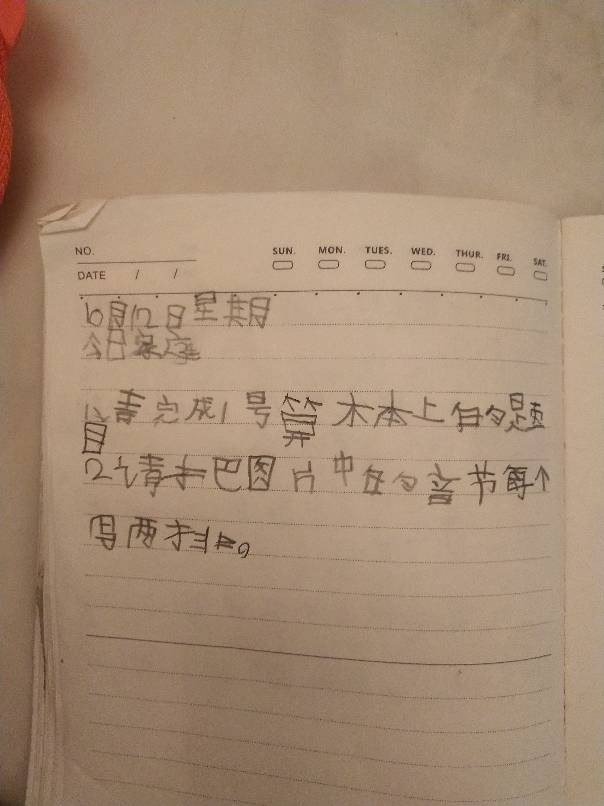 NO.
SUN. MON. TUES. WED. THUR. FRI. SAT.
DATE / /
10月12日星期
今日家庭
1、请完成1号算本上的题
目
2、请把图片中的音节每个
写两排。